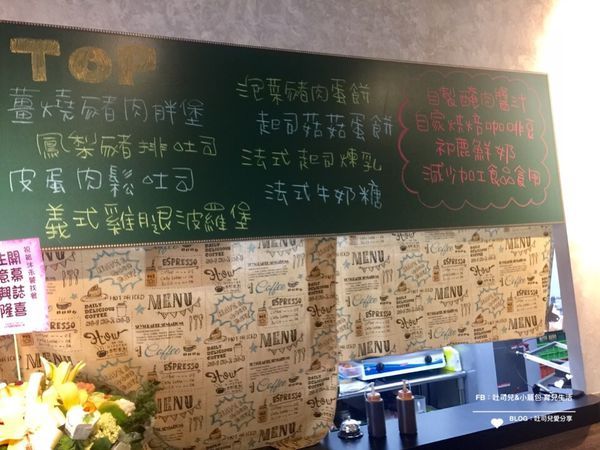 TOP
薑燒豬肉胖堡
鳳梨豬排吐司
皮蛋肉鬆吐司
義式雞腿波羅堡
泡菜豬肉蛋餅
起司菇菇蛋餅
法式起司煉乳
法式牛奶糖
自製醃肉醬汁
自家烘焙咖啡豆
初鹿鮮奶
減少加工食品食用
開幕誌喜
生意興隆
ESPRESSO
MENU
Coffee
DAILY
DELICIOUS
COFFEE
FB：吐司兒&小籠包 育兒生活
BLOG：吐司兒愛分享